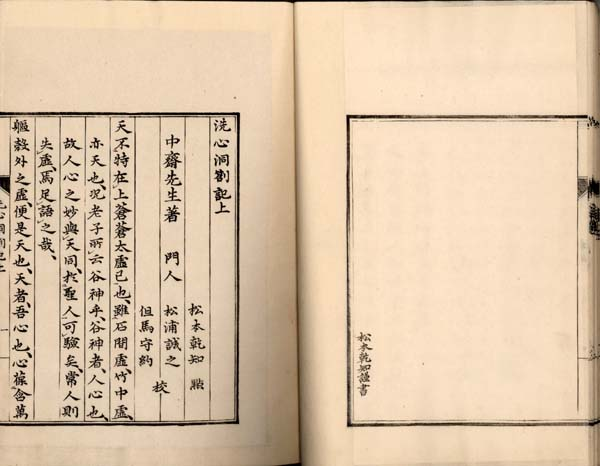 松本乾知謹書
洗心洞劄記上
中齋先生著 門人
松本乾知 點
松浦誠之
但馬守約 校
天不特在上蒼蒼太虛已也、雖石間虛、竹中虛、
亦天也、況老子所云谷神乎、谷神者、人心也、
故人心之妙與天同、於聖人可驗矣、常人則
失虛、焉足語之哉、
軀殼外之虛、便是天也、天者、吾心也、心葆含萬
洗心洞劄記上 一